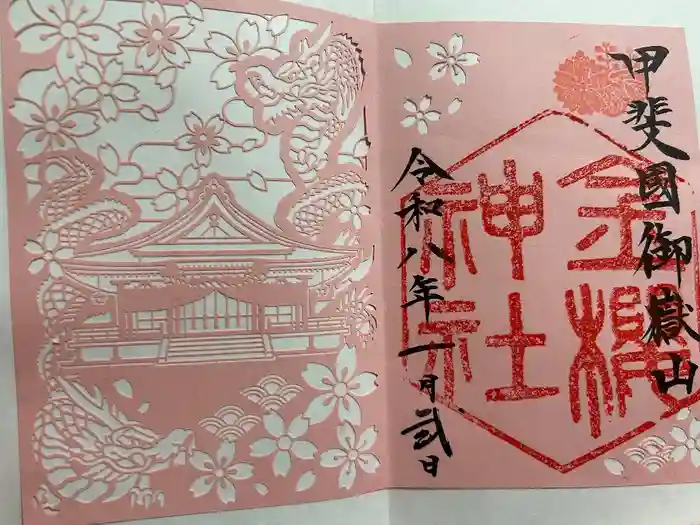 甲斐國御嶽山
金櫻神社
令和八年一月弐日